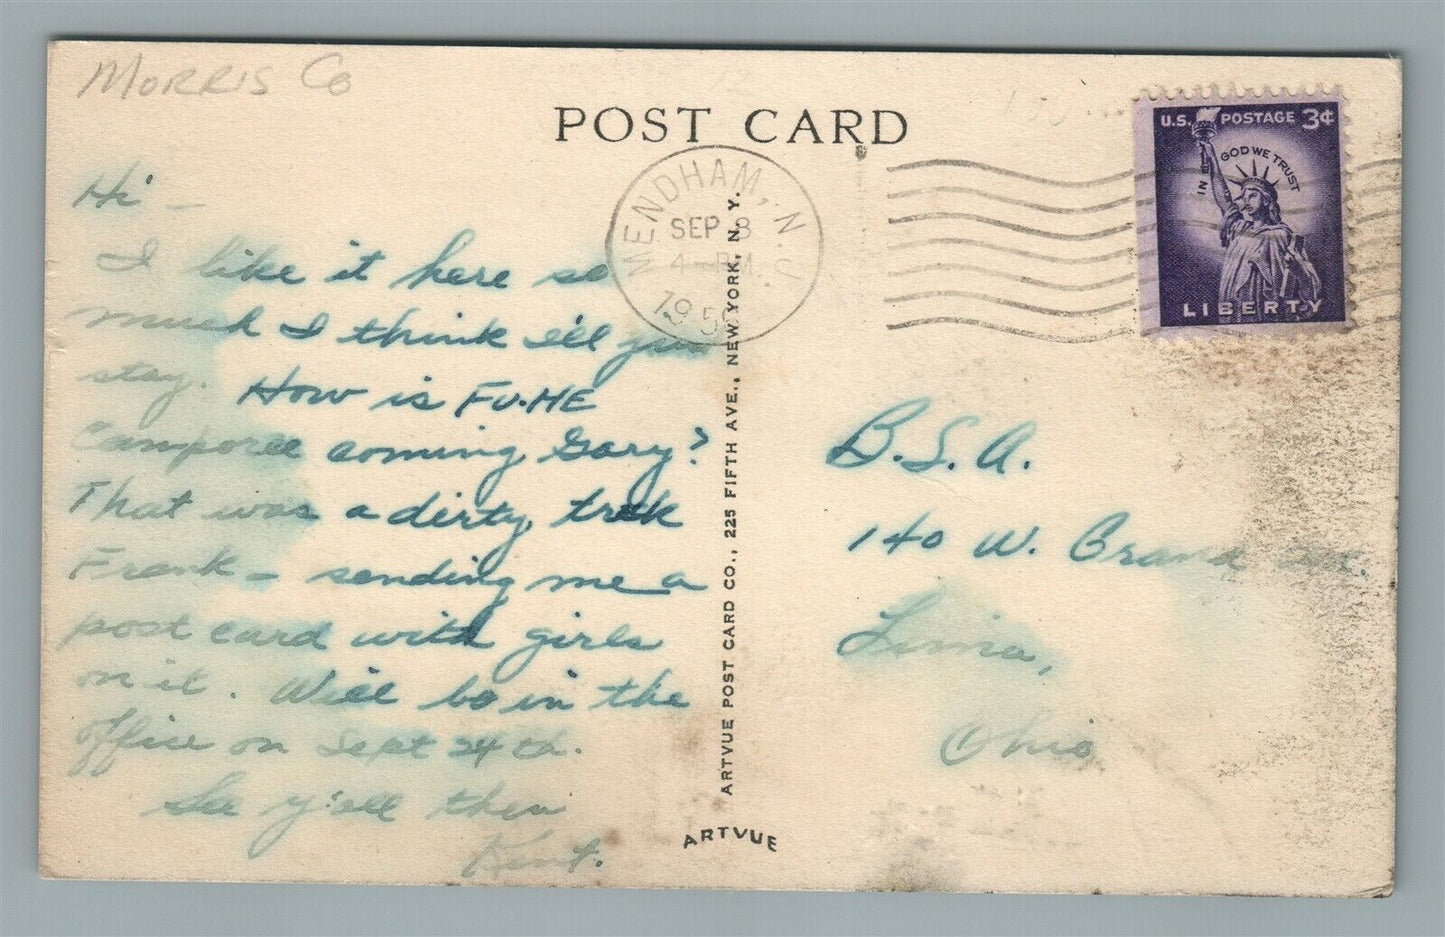 Morris Co
POST CARD
U.S. POSTAGE 3¢
IN GOD WE TRUST
LIBERTY
MENDHAM, N.J.
SEP 8
4-PM
195
Hi -
I like it here so
much I think I'll just
stay. How is FU-ME
Camporee coming Gary?
That was a dirty trick
Frank - sending me a
post card with girls
on it. Will be in the
office on Sept 24th.
See y'all then
Kent.
ARTVUE POST CARD CO., 225 FIFTH AVE., NEW YORK, N. Y.
ARTVUE
B.S.A.
140 W. Grand Ave.
Lima,
Ohio